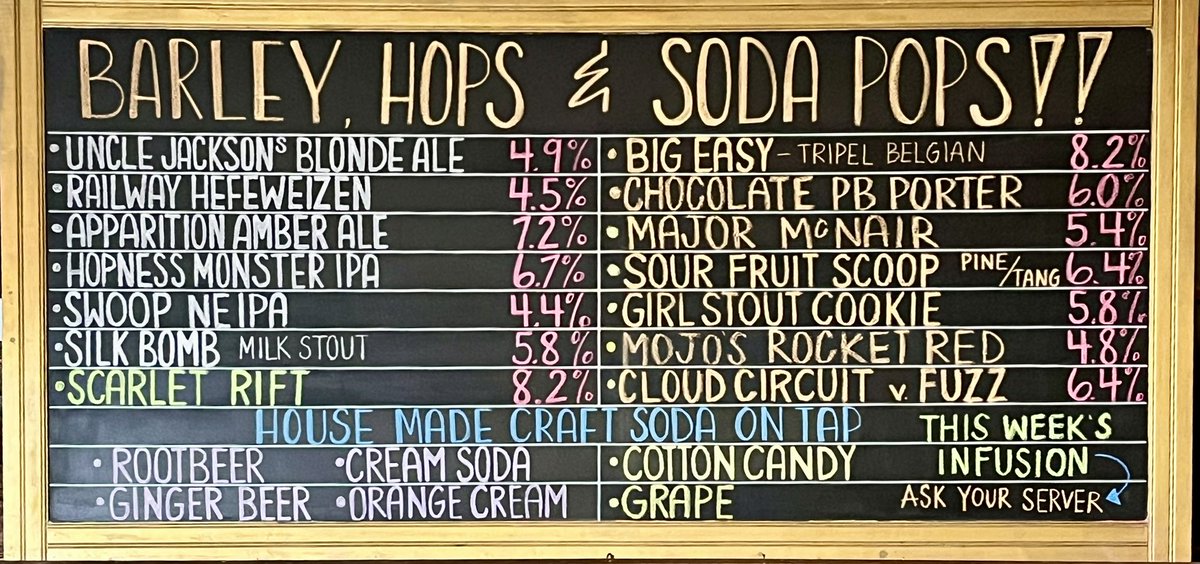 BARLEY, HOPS & SODA POPS!!
• UNCLE JACKSONS BLONDE ALE 4.9%
• RAILWAY HEFEWEIZEN 4.5%
• APPARITION AMBER ALE 7.2%
• HOPNESS MONSTER IPA 6.7%
• SWOOP NEIPA 4.4%
• SILK BOMB MILK STOUT 5.8%
• SCARLET RIFT 8.2%
• BIG EASY - TRIPEL BELGIAN 8.2%
• CHOCOLATE PB PORTER 6.0%
• MAJOR McNAIR 5.4%
• SOUR FRUIT SCOOP PINE/TANG 6.4%
• GIRL STOUT COOKIE 5.8%
• MOJO'S ROCKET RED 4.8%
• CLOUD CIRCUIT v. FUZZ 6.4%
HOUSE MADE CRAFT SODA ON TAP
• ROOTBEER • CREAM SODA • COTTON CANDY
• GINGER BEER • ORANGE CREAM • GRAPE
THIS WEEK'S
INFUSION
ASK YOUR SERVER